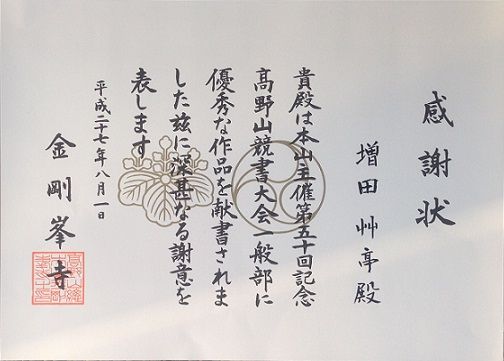 感謝状
増田艸亭殿
貴殿は本山主催第五十回記念
高野山競書大会一般部に
優秀な作品を献書されま
した茲に深甚なる謝意を
表します
平成二十七年八月一日
金剛峯寺